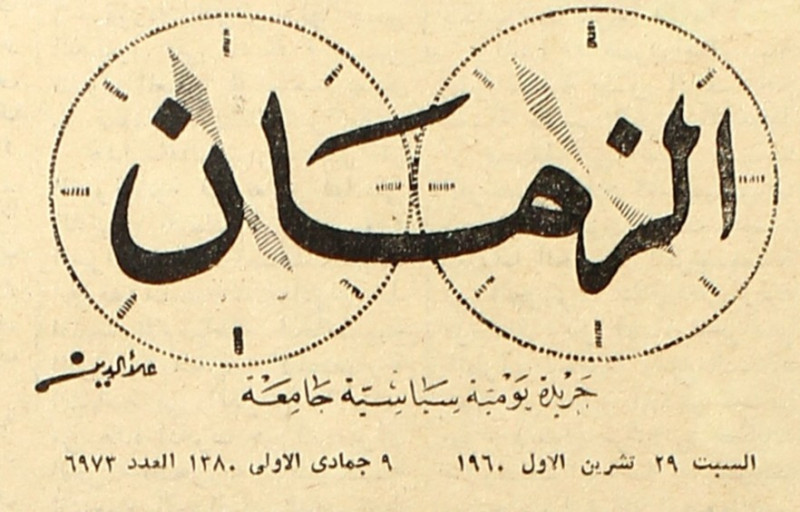 الزمان
علاءالدين
جَريْدة يَوْميّة سِيَاسِيّة جَامِعَة
السبت ٢٩ تشرين الاول ١٩٦٠ ٩ جمادى الاولى ١٣٨٠ العدد ٦٩٧٣